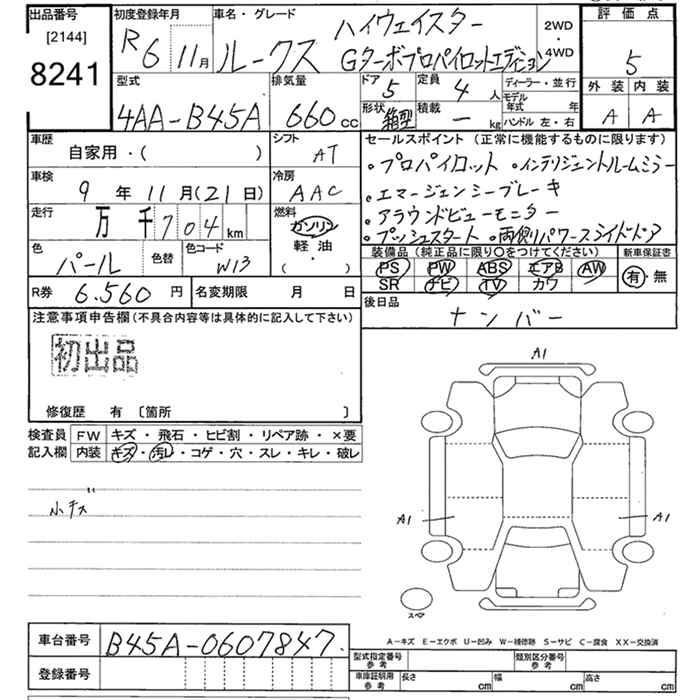 出品番号
[2144]
8241
初度登録年月
R6 11月
車名・グレード
ルークス
ハイウェイスター
Gターボプロパイロットエディション
2WD
・
4WD
評価点
5
外装 内装
A A
型式
4AA-B45A
排気量
660 cc
ドア
5
定員
4 人
形状
箱型
積載
ー kg
ディーラー・並行
モデル
年式 年
ハンドル 左・右
車歴
自家用・( )
シフト
AT
車検
9 年 11 月(21 日)
冷房
AAC
走行
万 千704 km
燃料
ガソリン
軽油・
( ・ )
色
パール
色替
色コード
W13
セールスポイント (正常に機能するものに限ります)
・プロパイロット ・インテリジェントルームミラー
・エマージェンシーブレーキ
・アラウンドビューモニター
・プッシュスタート ・両側パワースライドドア
装備品 (純正品に限り○をつけてください)
PS PW ABS エアB AW
SR ナビ TV カワ
新車保証書
有・無
R券 6.560 円
名変期限 月 日
後日品
ナンバー
注意事項申告欄 (不具合内容等は具体的に記入して下さい)
初出品
修復歴 有 〔箇所 〕
検査員
記入欄
FW キズ・飛石・ヒビ割・リペア跡・×要
内装 キズ・汚レ・コゲ・穴・スレ・キレ・破レ
小キズ
A1
A1
A1
スペア
A-キズ E-エクボ U-凹み W-補修跡 S-サビ C-腐食 XX-交換済
車台番号 B45A-0607847.
登録番号
型式指定番号
参考
類別区分番号
参考
車庫証明用
参考
長さ cm 幅 cm 高さ cm